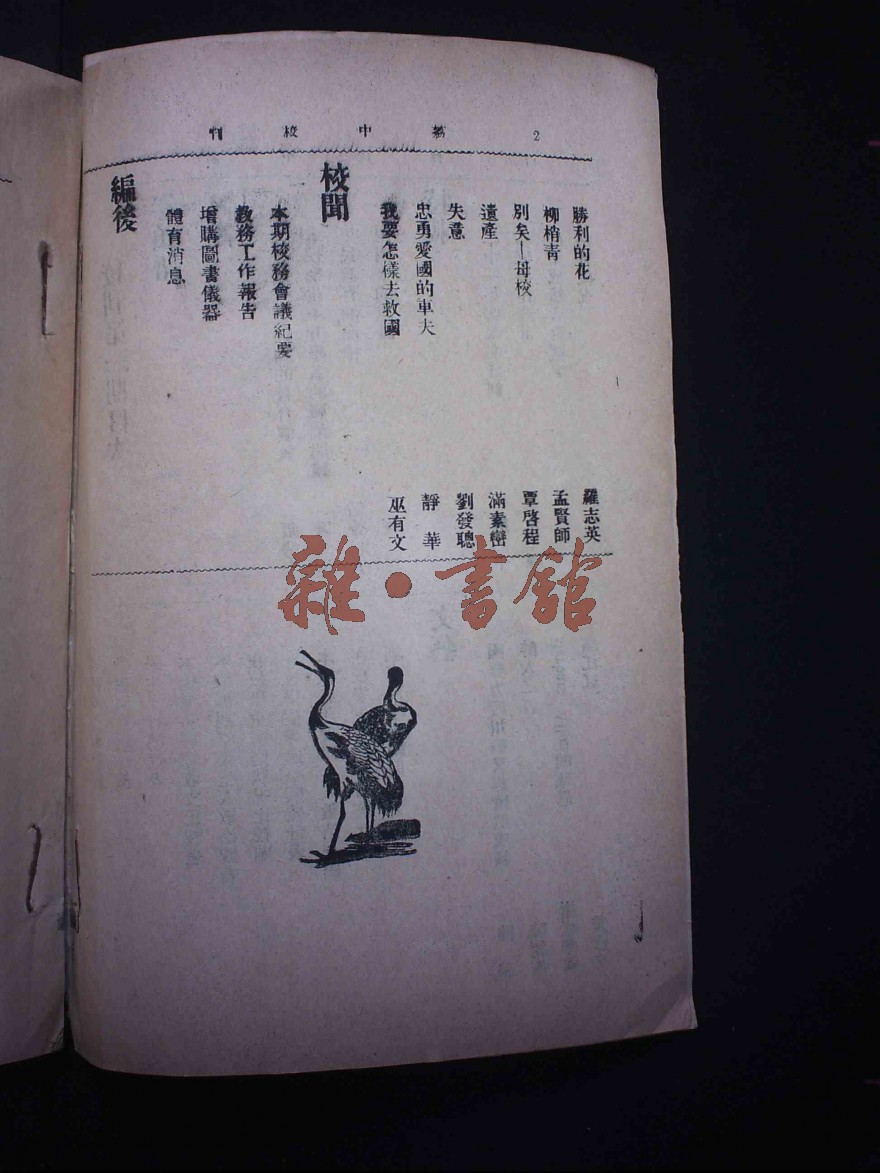 2 中校刊
勝利的花 羅志英
柳梢青 孟賢師
別矣—母校 覃啓程
遺產 滿素巒
失意 劉發聰
忠勇愛國的車夫 靜華
我要怎樣去救國 巫有文
校聞
本期校務會議紀要
教務工作報告
增購圖書儀器
體育消息
編後
雜·書館